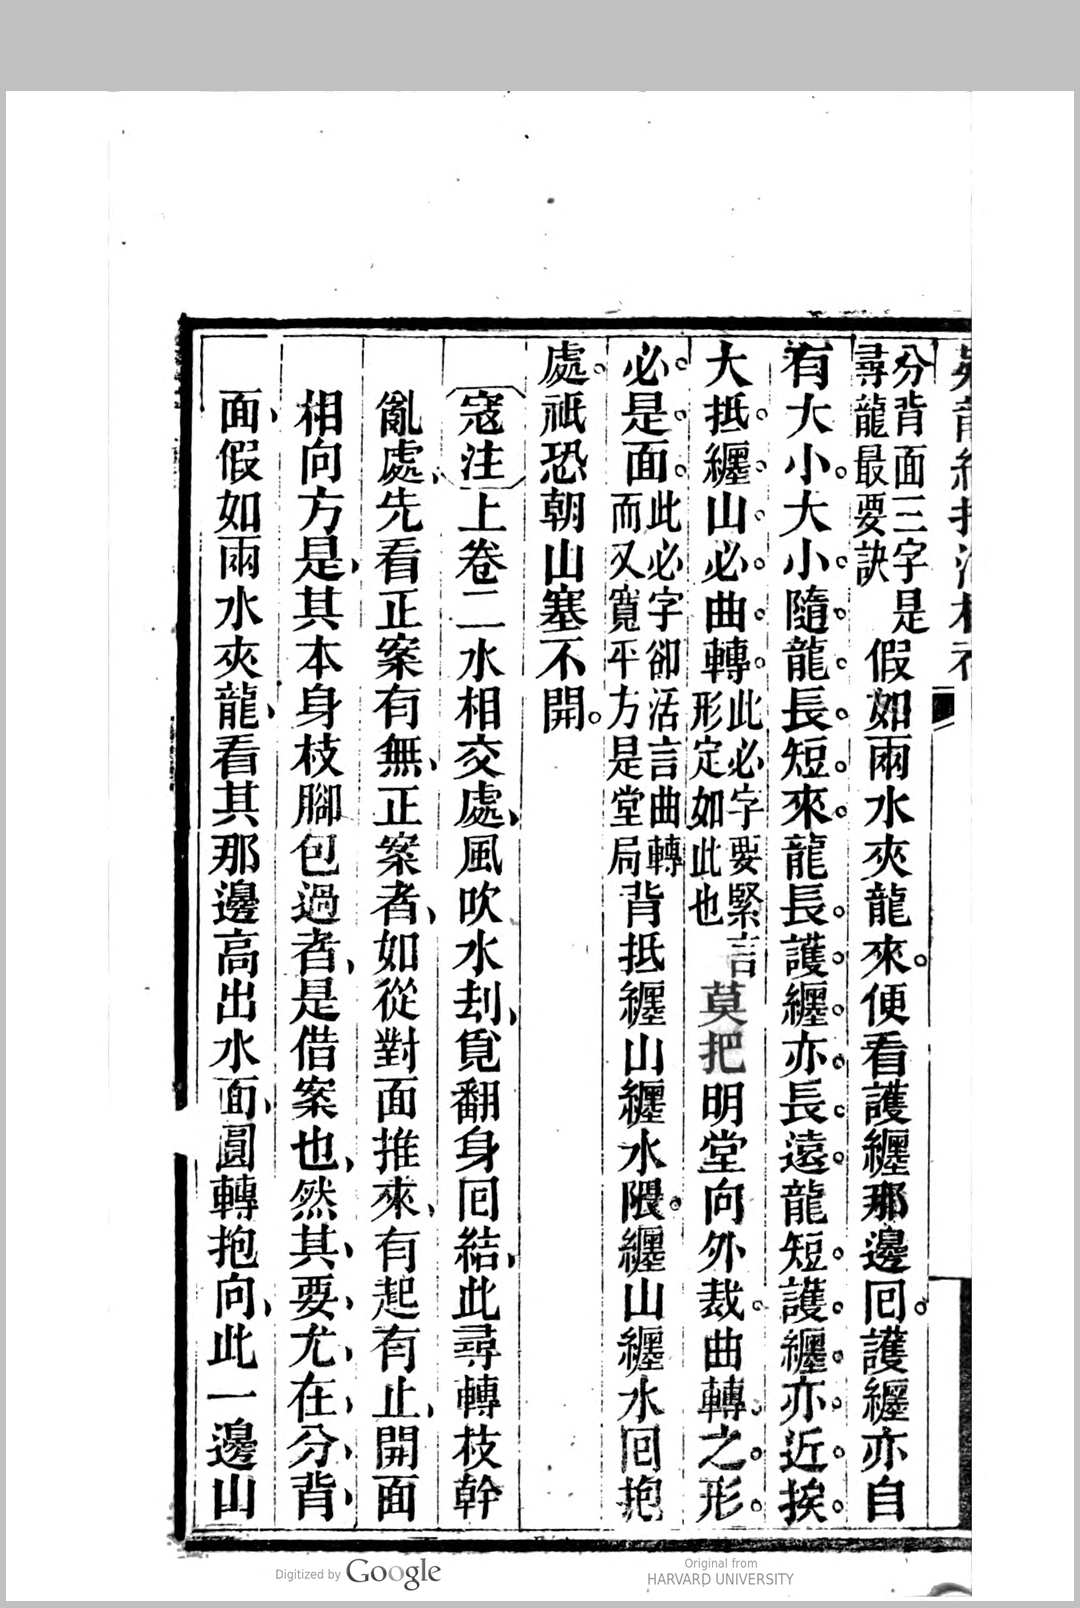 分背面三字是
尋龍最要訣
假如兩水夾龍來便看護纏那邊回護纏亦自
有大小大小隨龍長短來龍長護纏亦長遠龍短護纏亦近挨
大抵纏山必曲轉
此必字要緊言
形定如此也
莫把明堂向外裁曲轉之形
必是面
此必字卻活言曲轉
而又寬平方是堂局
背抵纏山纏水隈纏山纏水回抱
處祇恐朝山塞不開
寇注上卷二水相交處風吹水刦覓翻身回結此尋轉枝幹
亂處先看正案有無正案者如從對面推來有起有止開面
相向方是其本身枝腳包過者是借案也然其要尤在分背
面假如兩水夾龍看其那邊高出水面圓轉抱向此一邊山
Digitized by Google
Original from
HARVARD UNIVERSITY